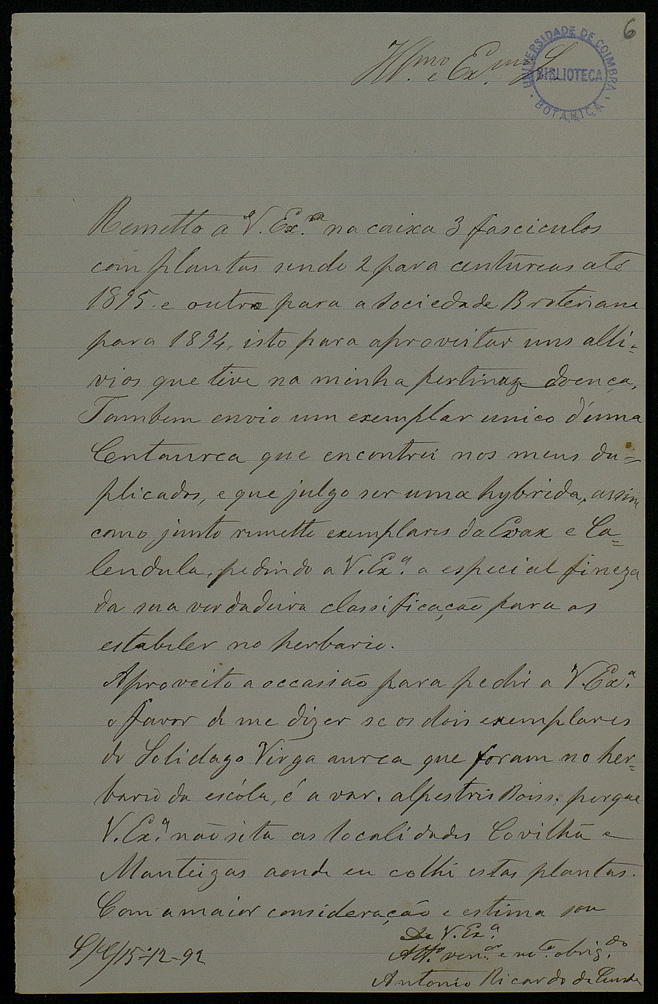 6
UNIVERSIDADE DE COIMBRA
BIBLIOTECA
BOTANICA
Illmo. e Exmo. Sr.
Remetto a V. Ex.ª na caixa 3 fasciculos
com plantas sendo 2 para centureas até
1895 e outro para a Sociedade Broteriana
para 1894, isto para aproveitar uns alli-
vios que tive na minha pertinaz doença,
Tambem envio um exemplar unico d'uma
Centaurea que encontrei nos meus du-
plicados, e que julgo ser uma hybrida, assim
como junto remetto exemplares da Evax e Ca-
lendula, pedindo a V. Ex.ª a especial fineza
da sua verdadeira classificação para os
estabeler no herbario.
Aproveito a occasião para pedir a V. Ex.ª
o favor de me dizer se os dois exemplares
de Solidago Virga aurea que foram no her-
bario da escóla, é a var. alpestris Boiss. porque
V. Ex.ª não sita as localidades Covilhã e
Manteigas aonde eu colhi estas plantas.
Com a maior consideração e estima sou
De V. Ex.ª
Att.º ven.or e m.to obrig.do
15-12-92
Antonio Ricardo da Cunha